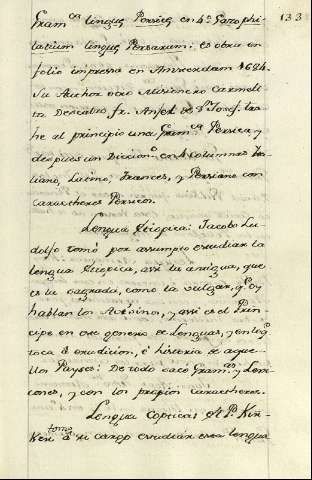 133
Gram.ca linguę Persicę en 4.º Gazophi-
latium linguę Persarum: es obra en
folio impresa en Amsterdam 1684.
Su Author otro Missionero Carmeli-
ta Descalzo fr. Anjel de Sn. Josef: tra-
he al principio una Gram.ca Persica, y
despues un Diccion.o en 4 columnas Ita-
liano, Latino, Frances, y Persiano con
caracthéres Persicos.
Lengua Etiopica: Jacobo Lu-
dolfo tomó por assumpto estudiar la
lengua Etiopica, assi la antigua, que
es la sagrada, como la vulgar, q.e oy
hablan los Abisinos, y assi es el Prin-
cipe en ese genero de Lenguas, y en lo q.e
toca á erudicion, é historia de aque-
llos Payses: De todo sacó Gram.as y Lexi-
cones, y con los propios caracthéres.
Lengua Coptica: El P. Kir-
Ker tomó á su cargo estudiar esta lengua